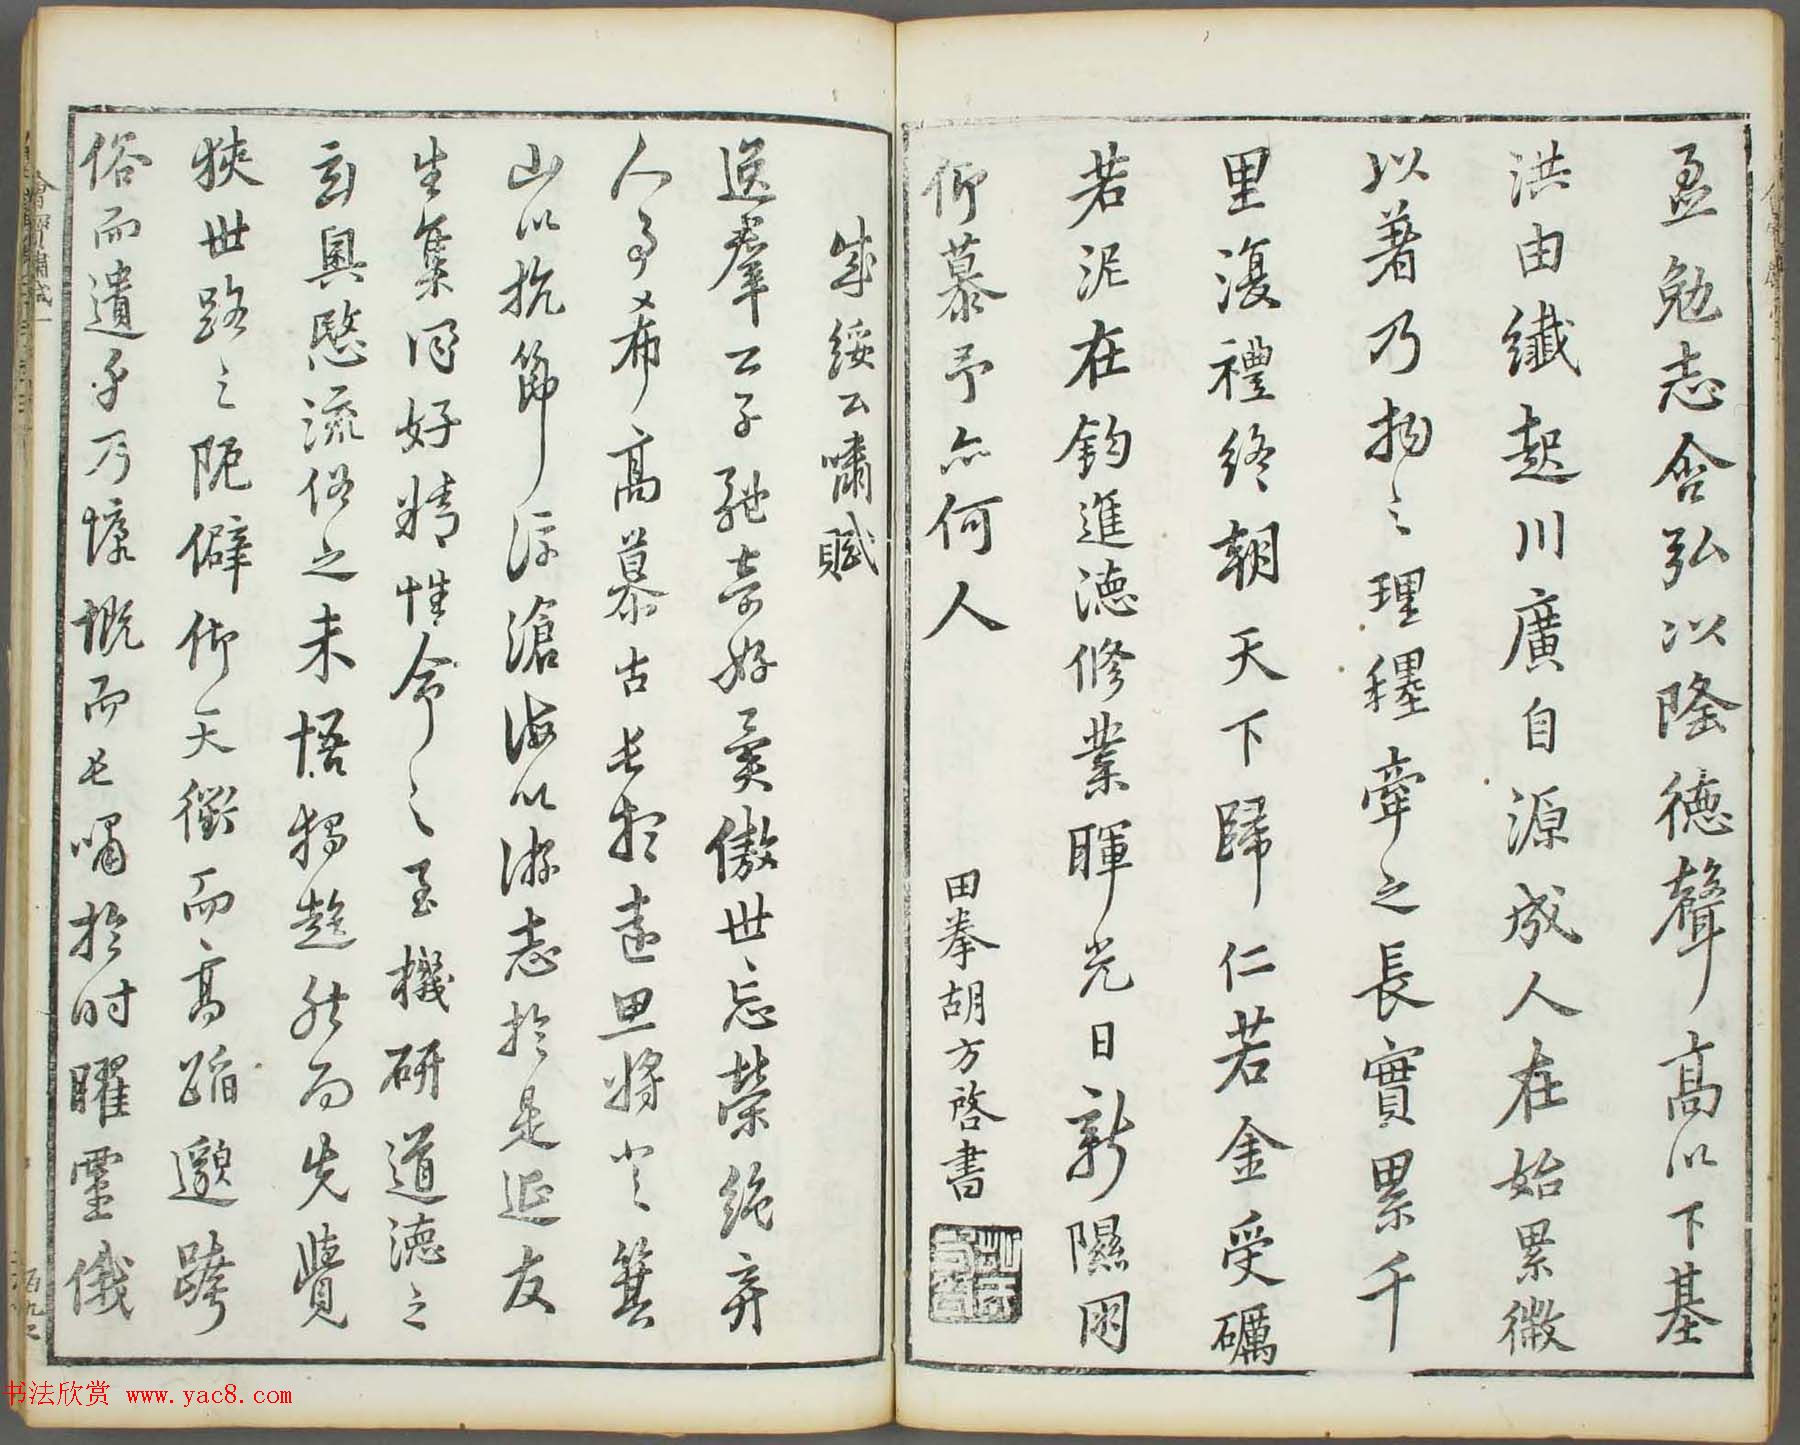 盈勉志含弘以隆德聲高以下基
洪由纖起川廣自源成人在始累微
以著乃物之理纆牽之長實累千
里復禮終朝天下歸仁若金受礪
若泥在鈞進德修業暉光日新隰朋
仰慕予亦何人
田拳胡方啓書
成綏公嘯賦
逸羣公子體奇好異傲世忘榮絕棄
人事希高慕古長想遠思將登箕
山以抗節浮滄海以游志於是延友
生集同好精性命之至機研道德之
玄奧愍流俗之未悟獨超然而先覺
狹世路之阨僻仰天衢而高蹈邈跨
俗而遺身乃慷慨而長嘯於時曜靈俄
书法欣赏 www.yac8.com